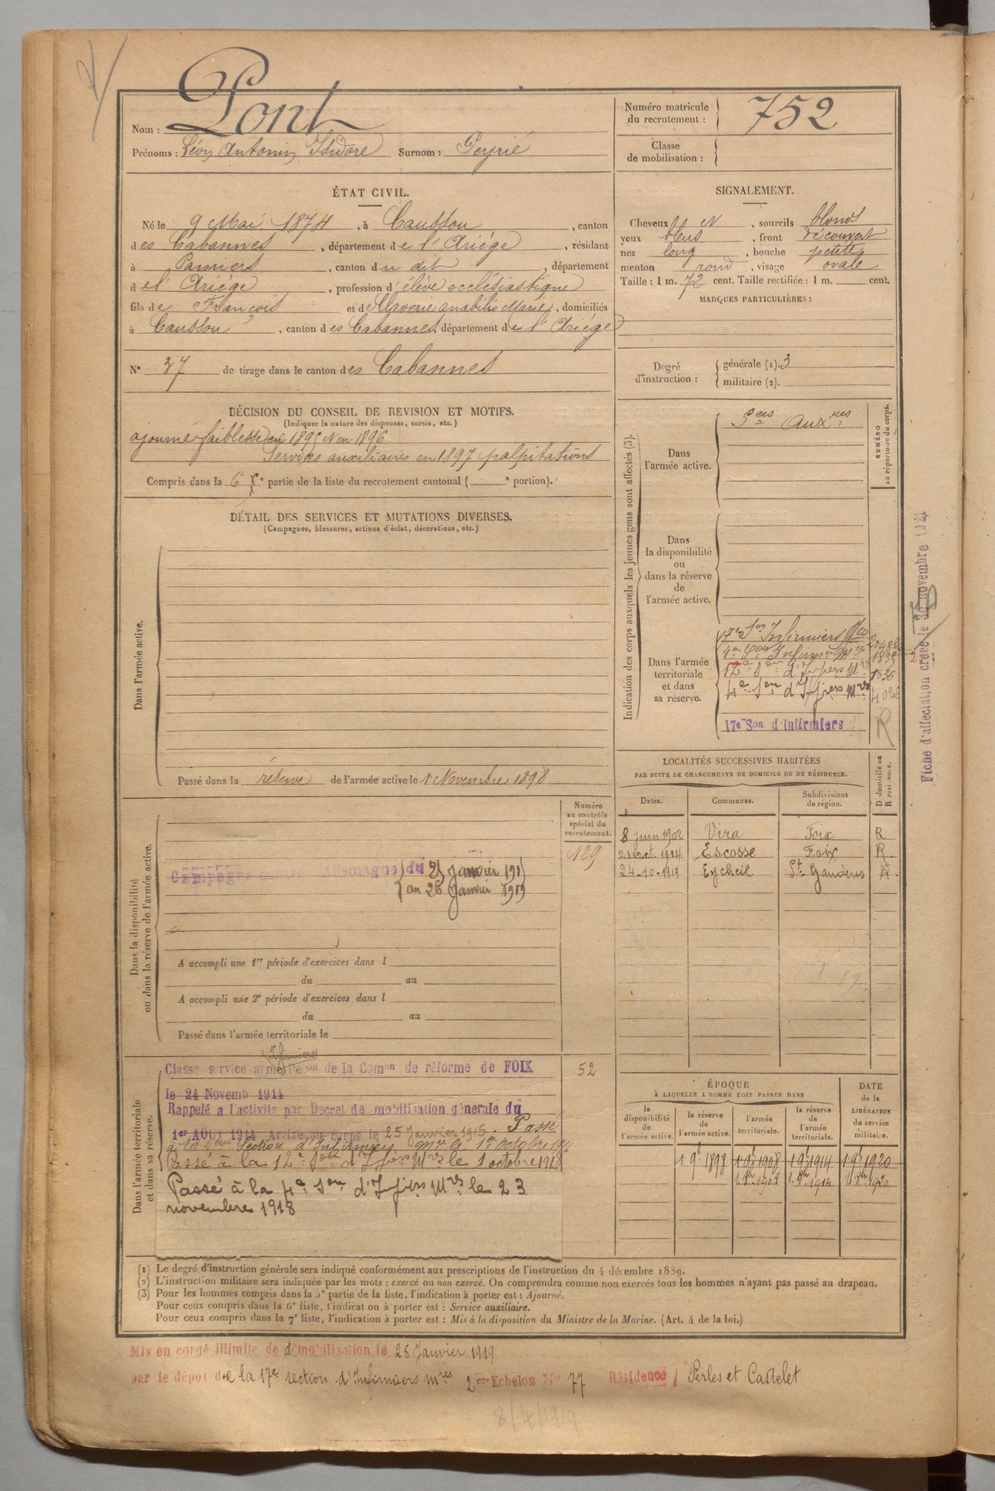 Nom : Pont
Prénoms : Léon Antonin Isidore Surnom : Peyrié
Numéro matricule du recrutement : 752
Classe de mobilisation :
ÉTAT CIVIL.
Né le 9 Mai 1874, à Caussou, canton
des Cabannes, département de l'Ariége, résidant
à Pamiers, canton du dit, département
de l'Ariége, profession d'élève ecclésiastique
fils de François et de Marie, domiciliés
à Caussou, canton des Cabannes, département de l'Ariége
N° 37 de tirage dans le canton des Cabannes
SIGNALEMENT.
Cheveux et sourcils blonds
yeux bleus, front découvert
nez long, bouche petite
menton rond, visage ovale
Taille : 1 m. 72 cent. Taille rectifiée : 1 m. cent.
MARQUES PARTICULIÈRES :
Degré d'instruction : générale (1). 3
militaire (2).
DÉCISION DU CONSEIL DE REVISION ET MOTIFS.
(Indiquer la nature des dispenses, sursis, etc.)
ajourné faiblesse en 1895 et en 1896
Services auxiliaires en 1897 palpitations
Compris dans la 6e partie de la liste du recrutement cantonal ( e portion).
DÉTAIL DES SERVICES ET MUTATIONS DIVERSES.
(Campagnes, blessures, actions d'éclat, décorations, etc.)
Dans l'armée active.
Passé dans la réserve de l'armée active le 1 Novembre 1898
Indication des corps auxquels les jeunes gens sont affectés (3).
NUMÉRO au répertoire du corps.
Dans l'armée active.
Sces Auxres
Dans la disponibilité ou dans la réserve de l'armée active.
Dans l'armée territoriale et dans sa réserve.
17e Son Infirmiers
12e Son d'Infirs Mres
4e Son d'Infirs Mres
17e Son d'infirmiers
R
Fiche d'affectation créée le novembre 1921
LOCALITÉS SUCCESSIVES HABITÉES
PAR SUITE DE CHANGEMENTS DE DOMICILE OU DE RÉSIDENCE.
Dates. Communes. Subdivisions de région. D domicile ou R résidence.
8 juin 1902 Vira Foix R
21 oct. 1914 Escosse Foix R
24-10-1919 Eycheil St Gaudens R
Dans la disponibilité ou dans la réserve de l'armée active.
Numéro au contrôle spécial du recrutement.
129
Campagne contre Allemagne du 25 janvier 191
au 26 Janvier 1919
A accompli une 1re période d'exercices dans l
du au
A accompli une 2e période d'exercices dans l
du au
Passé dans l'armée territoriale le
Dans l'armée territoriale et dans sa réserve.
52
Infirmiers
Classé service armé Décon de la Comon de réforme de FOIX
le 24 Novemb 1914
Rappelé à l'activité par Décret de mobilisation générale du
1er AOUT 1914 Arrivé au corps le 25 Janvier 1915. Passé
à la Section d'Infirmiers Mre le 1er octobre
Passé à la 12e Son d'Infirs Mres le 1 octobre 1918
Passé à la 4e Son d'Infirs Mres le 23
novembre 1918
ÉPOQUE
À LAQUELLE L'HOMME DOIT PASSER DANS
DATE DE LA LIBÉRATION du service militaire.
la disponibilité de l'armée active. la réserve de l'armée active. l'armée territoriale. la réserve de l'armée territoriale.
1 9bre 1898 1 9bre 1908 1 9bre 1914 1 9bre 1920
(1) Le degré d'instruction générale sera indiqué conformément aux prescriptions de l'instruction du 4 décembre 1889.
(2) L'instruction militaire sera indiquée par les mots : exercé ou non exercé. On comprendra comme non exercés tous les hommes n'ayant pas passé au drapeau.
(3) Pour les hommes compris dans la 5e partie de la liste, l'indication à porter est : Ajourné.
Pour ceux compris dans la 6e liste, l'indication à porter est : Service auxiliaire.
Pour ceux compris dans la 7e liste, l'indication à porter est : Mis à la disposition du Ministre de la Marine. (Art. 4 de la loi.)
Mis en congé illimité de démobilisation le 26 Janvier 1919
par le dépôt de la 17e section d'Infirmiers mres 2er Echelon No 77 Résidence Perles et Castelet
8/4/1919